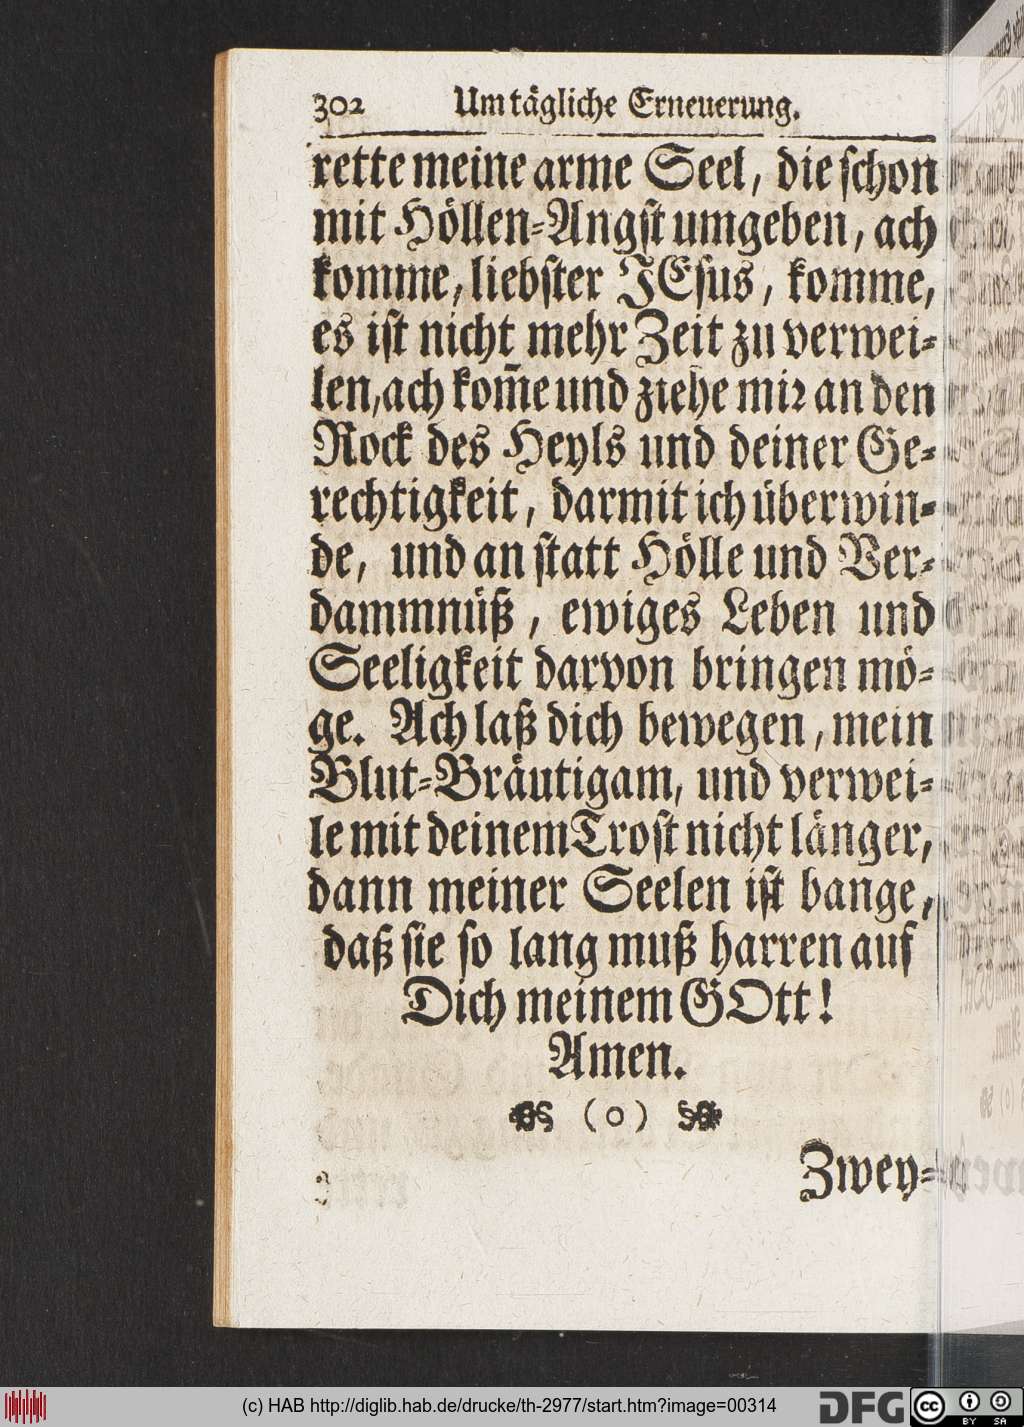 302 Um tägliche Erneuerung.
rette meine arme Seel, die ſchon
mit Höllen-Angſt umgeben, ach
komme, liebſter JEſus, komme,
es iſt nicht mehr Zeit zu verwei-
len, ach kom̃e und ziehe mir an den
Rock des Heyls und deiner Ge-
rechtigkeit, darmit ich überwin-
de, und an ſtatt Hölle und Ver-
dammnüß, ewiges Leben und
Seeligkeit darvon bringen mö-
ge. Ach laß dich bewegen, mein
Blut-Bräutigam, und verwei-
le mit deinem Troſt nicht länger,
dann meiner Seelen iſt bange,
daß ſie ſo lang muß harren auf
Dich meinem GOtt!
Amen.
(o)
Zwey-
(c) HAB http://diglib.hab.de/drucke/th-2977/start.htm?image=00314
DFG
cc BY SA